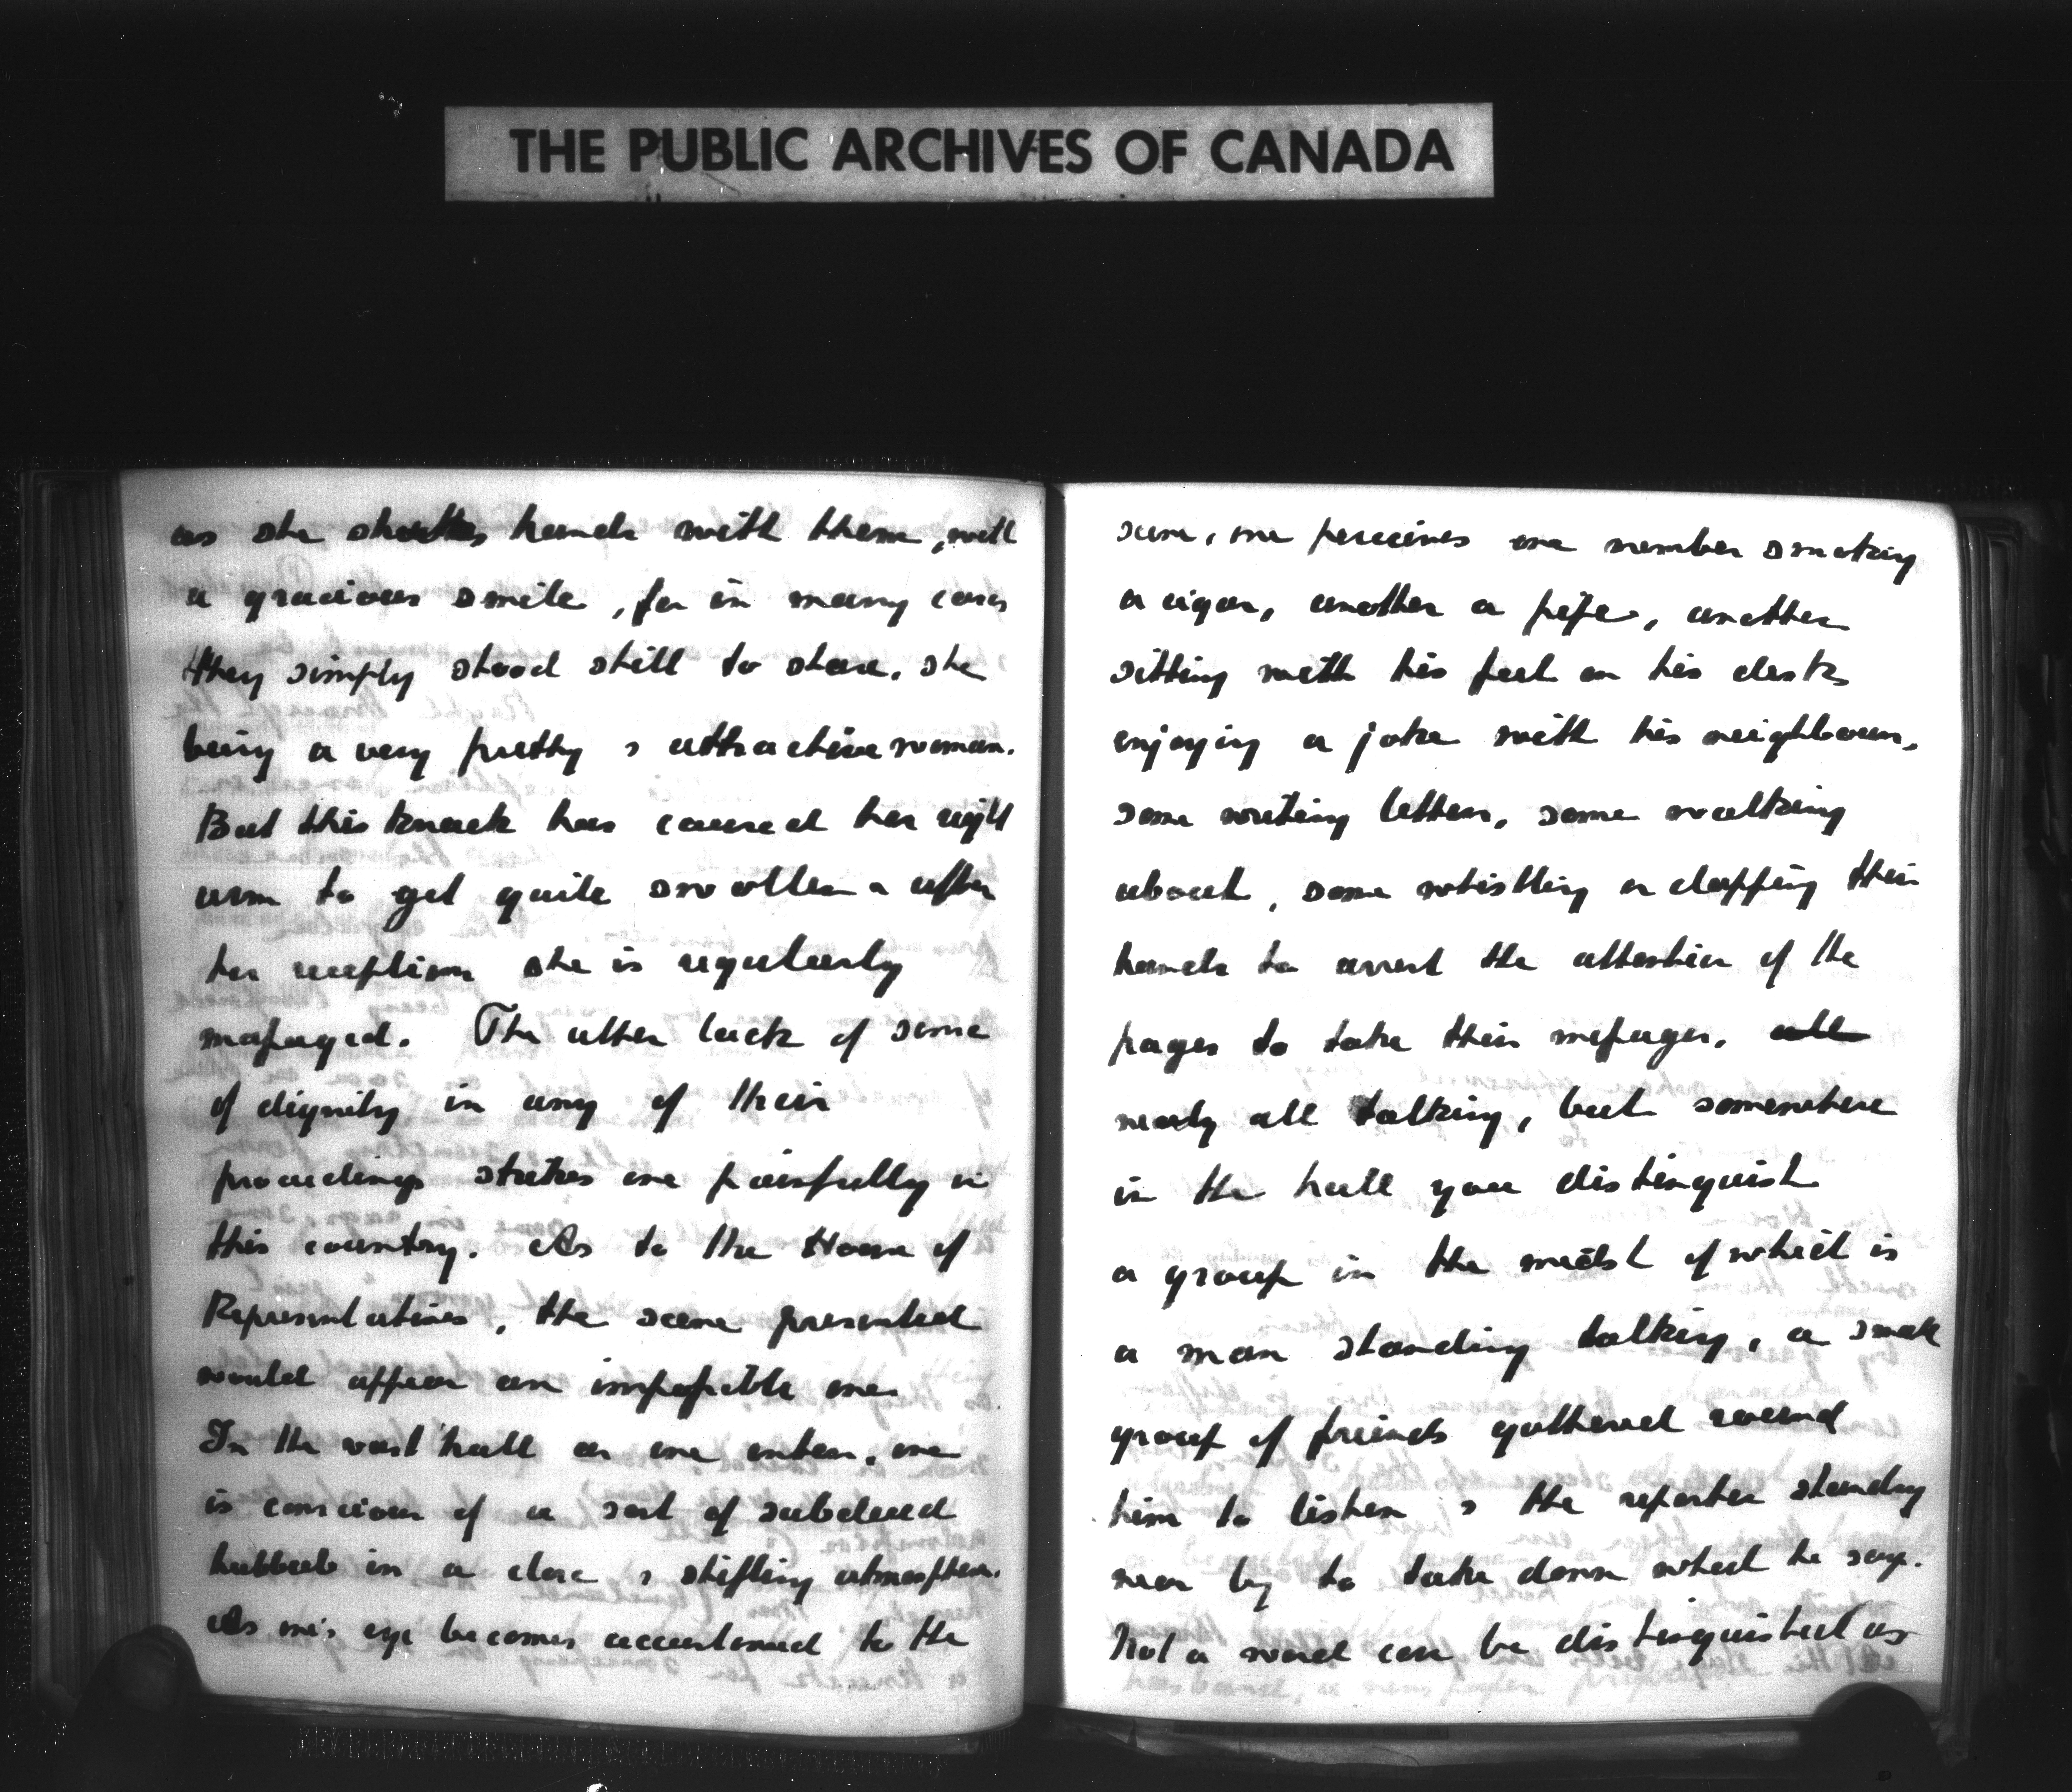 THE PUBLIC ARCHIVES OF CANADA
as she shakes hands with them, with
a gracious smile, for in many cases
they simply stood still to stare, she
being a very pretty & attractive woman.
But this knack has caused her right
arm to get quite swollen & after
her reception she is regularly
massaged. The utter lack of some
of dignity in any of their
proceedings strikes one painfully in
this country. As to the House of
Representatives, the scene presented
would appear an impossible one.
In the vast hall as one enters, one
is conscious of a sort of subdued
hubbub in a close & stifling atmosphere.
As one's eye becomes accustomed to the
scene, one perceives one member smoking
a cigar, another a pipe, another
sitting with his feet on his desk
enjoying a joke with his neighbours,
some writing letters, some walking
about, some whistling or clapping their
hands to arrest the attention of the
pages to take their messages, all
nearly all talking, but somewhere
in the hall you distinguish
a group in the midst of which is
a man standing talking, a small
group of friends gathered round
him to listen & the reporter standing
near by to take down what he says.
Not a word can be distinguished as